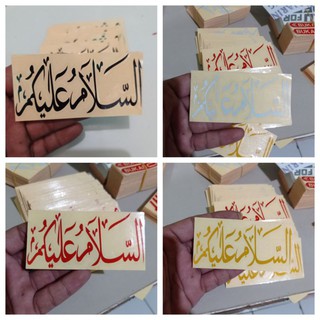 السَّلَامُ عَلَيْكُمْ
السَّلَامُ عَلَيْكُمْ
السَّلَامُ عَلَيْكُمْ
السَّلَامُ عَلَيْكُمْ